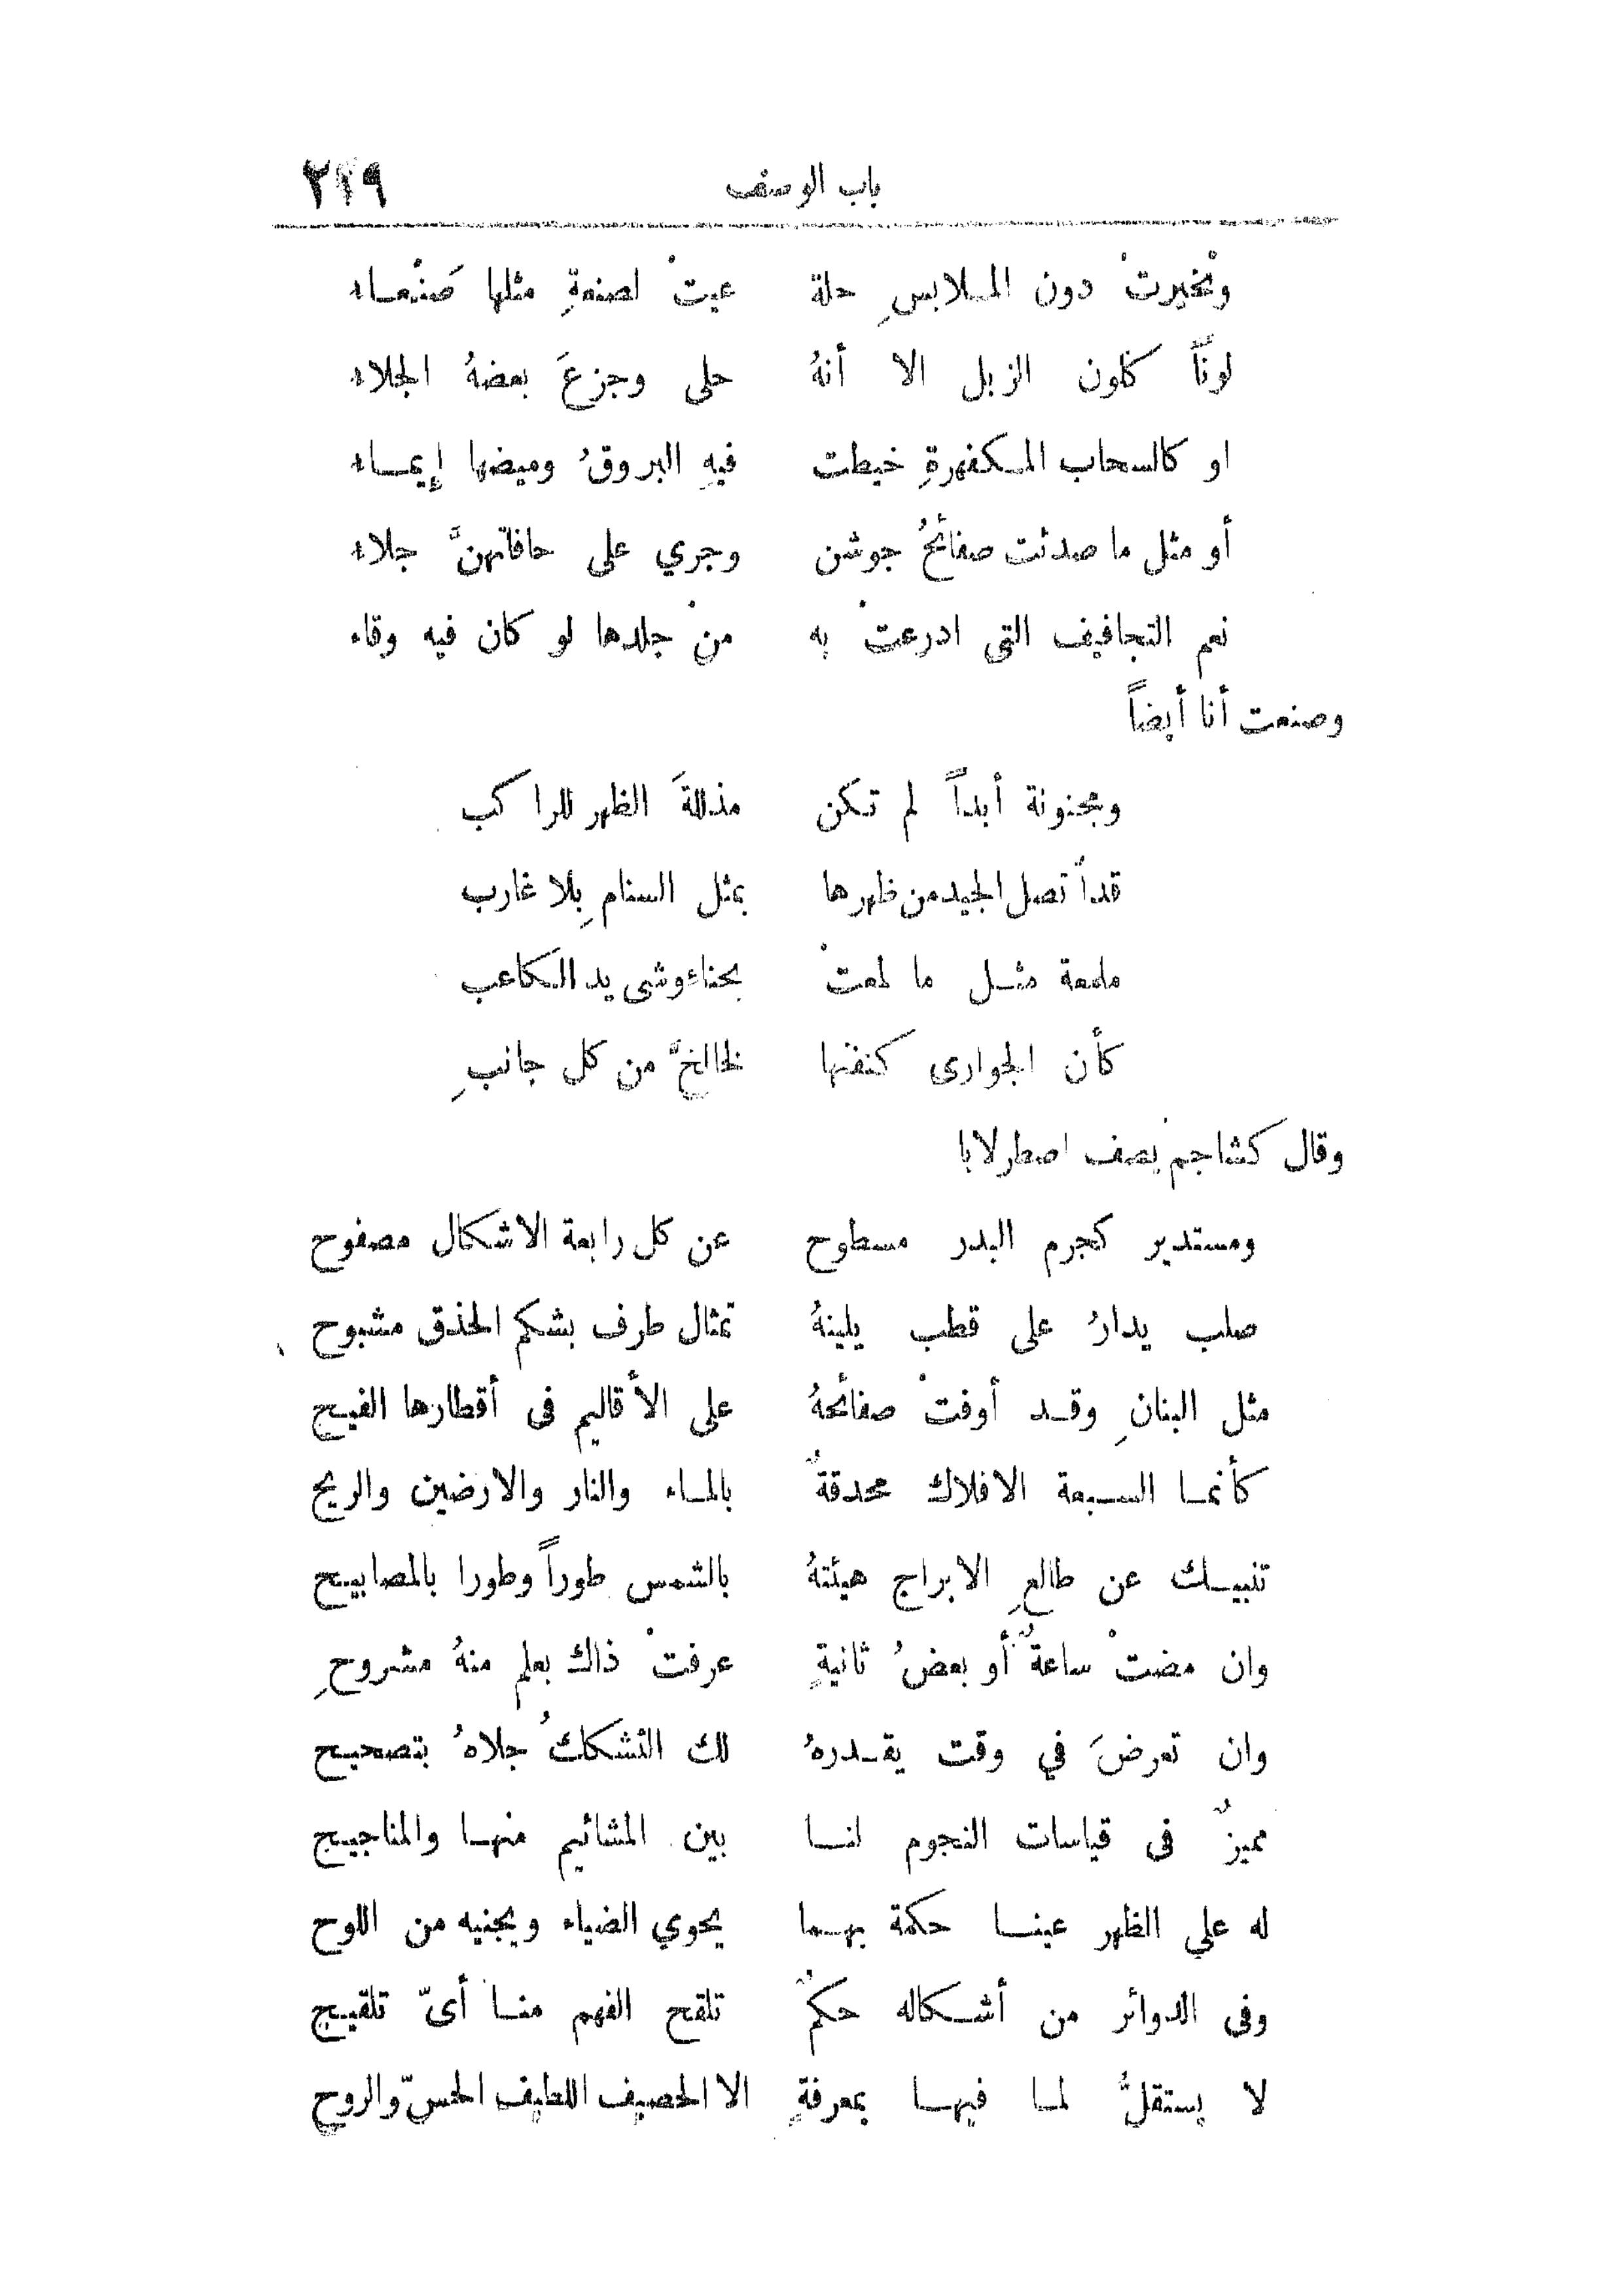 باب الوصف ٢٢٩
وتخيرتْ دون الملابسِ حلة عيتْ لصنعةِ مثلها صَنْعاء
لوناً كلون الزبل الا أنهُ حلى وجزعَ بعضهُ الجلاء
او كالسحاب المكفهرةِ خيطت فيهِ البروقُ وميضها إيماء
أو مثل ما صدئت صفائحُ جوشن وجري على حافاتهنَّ جلاء
نعم التجافيف التى ادرعتْ به منْ جلدها لو كان فيه وقاء
وصنعت أنا أيضاً
ومجنونة أبداً لم تكن مذللةَ الظهر للراكب
قداً تصل الجيد من ظهرها بمثل السنامِ بلا غارب
ملمعة مثل ما لمعتْ بحناء وشى يد الكاعب
كأن الجوارى كنفنها لخالخَ من كل جانبِ
وقال كشاجم يصف اصطرلابا
ومستدير كجرم البدر مسطوح عن كل رابعة الاشكال مصفوح
صلب يدارُ على قطب يلينهُ تمثال طرف بشكم الحذق مشبوح
مثل البنانِ وقد أوفتْ صفائحهُ على الأقاليم فى أقطارها الفيح
كأنما السبعة الافلاك محدقةٌ بالماء والنار والارضين والريح
تنبيك عن طالعِ الابراج هيئتهُ بالشمس طوراً وطورا بالمصابيح
وان مضتْ ساعةٌ أو بعضُ ثانيةٍ عرفتْ ذاك بعلم منهُ مشروحِ
وان تعرضَ في وقت يقدرهُ لك التشككُ جلاهُ بتصحيح
مميزٌ فى قياسات النجوم لنا بين المشائيم منها والمناجيح
له علي الظهر عينا حكمة بهما يحوي الضياء ويجنيه من اللوح
وفى الدوائر من أشكاله حكمٌ تلقح الفهم منا أىّ تلقيح
لا يستقلُّ لما فيها بمعرفةٍ الا الحصيف اللطيف الحسّ والروح